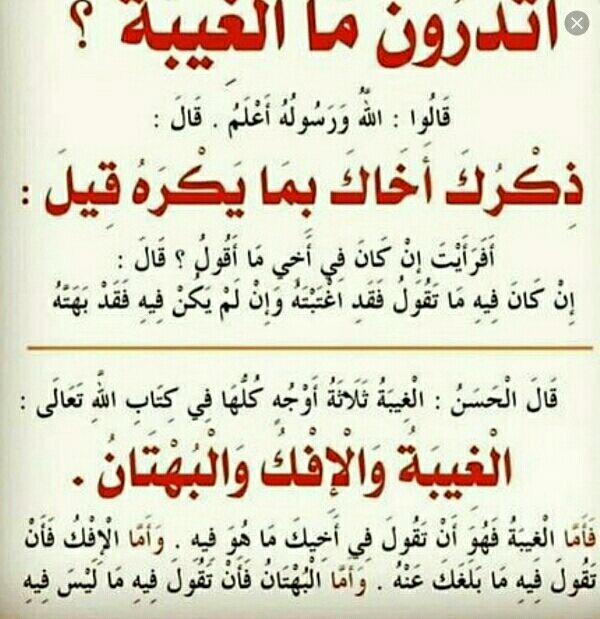 أتدرون ما الغيبة ؟
قَالُوا : اللهُ وَرَسُولُهُ أَعْلَمُ . قَالَ :
ذِكْرُكَ أَخَاكَ بِمَا يَكْرَهُ قِيلَ :
أَفَرَأَيْتَ إِنْ كَانَ فِي أَخِي مَا أَقُولُ ؟ قَالَ :
إِنْ كَانَ فِيهِ مَا تَقُولُ فَقَدِ اغْتَبْتَهُ وَإِنْ لَمْ يَكُنْ فِيهِ فَقَدْ بَهَتَّهُ
قَالَ الْحَسَنُ : الْغِيبَةُ ثَلَاثَةُ أَوْجُهٍ كُلُّهَا فِي كِتَابِ اللهِ تَعَالَى :
الْغِيبَةُ وَالْإِفْكُ وَالْبُهْتَانُ .
فَأَمَّا الْغِيبَةُ فَهُوَ أَنْ تَقُولَ فِي أَخِيكَ مَا هُوَ فِيهِ . وَأَمَّا الْإِفْكُ فَأَنْ
تَقُولَ فِيهِ مَا بَلَغَكَ عَنْهُ . وَأَمَّا الْبُهْتَانُ فَأَنْ تَقُولَ فِيهِ مَا لَيْسَ فِيهِ